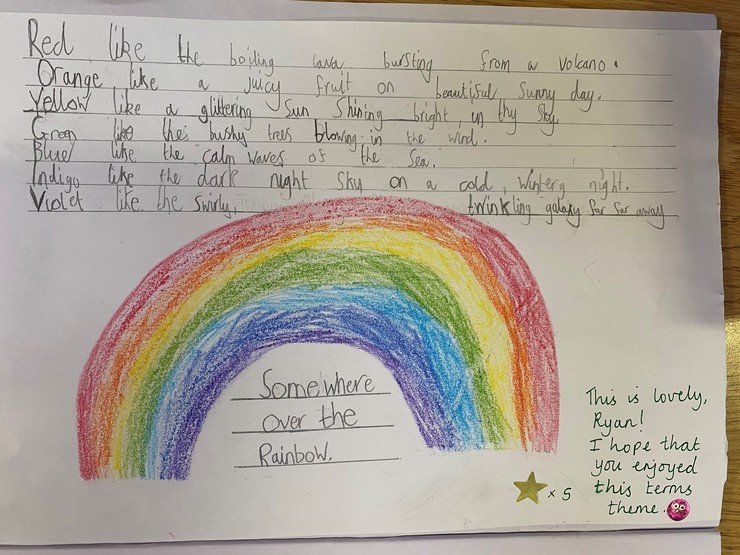 Red like the boiling lava bursting from a volcano.
Orange like a juicy fruit on beautiful sunny day.
Yellow like a glittering sun shining bright in thy sky
Green like the bushy trees blowing in the wind.
Blue like the calm waves of the sea.
Indigo like the dark night sky on a cold, wintery night.
Violet like the swirly, twinkling galaxy far far away
Somewhere
over the
Rainbow.
This is lovely,
Ryan!
I hope that
you enjoyed
this terms
theme.
x 5